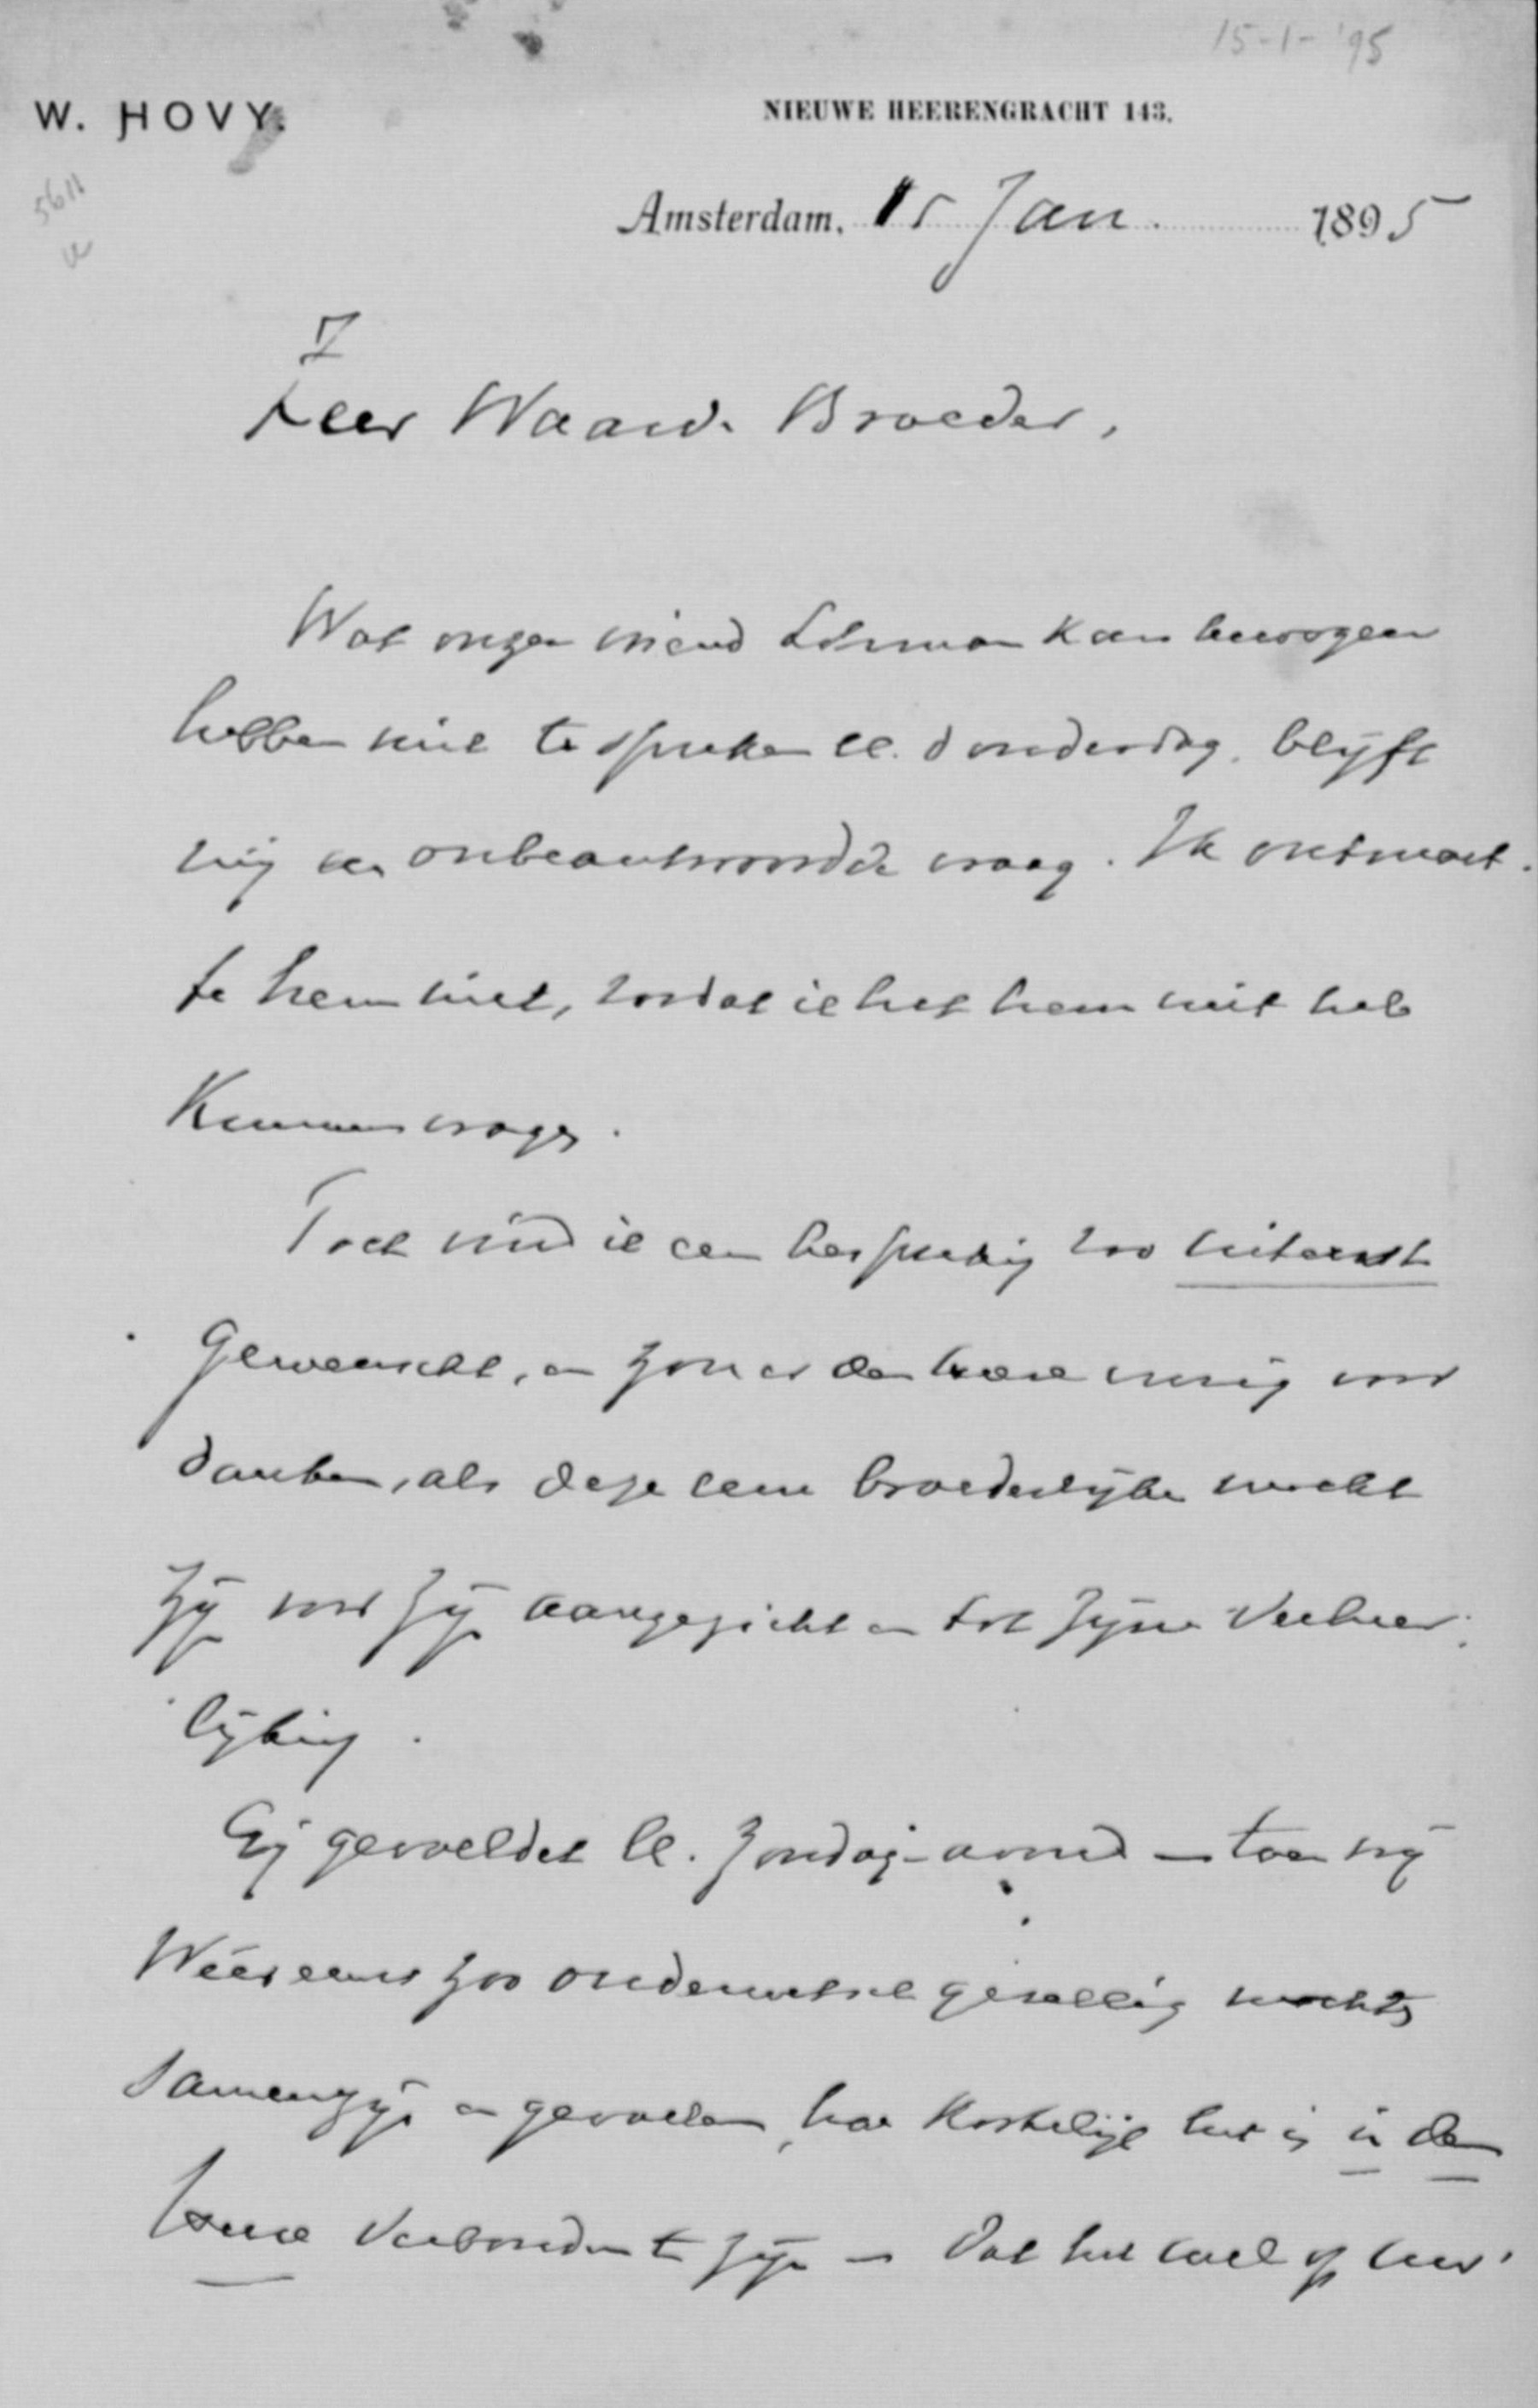 15-1-'95
W. HOVY.
NIEUWE HEERENGRACHT 143.
5611
Amsterdam, 15 Jan. 1895
Z
Zeer Waarde Broeder,
Wat onzen vriend Lohman kan bewogen
hebben niet te spreken ll. donderdag, blijft
mij een onbeantwoorde vraag. Ik ontmoet-
te hem niet, zoodat ik het hem niet heb
kunnen vragen.
Toch vind ik een bespreking zoo uiterst
gewenscht, en zou er den Heere innig voor
danken, als deze eene broederlijke mocht
zijn voor Zijn aangezicht en tot Zijne Verheer-
lijking.
Gij gevoeldet ll. Zondag-avond – toen wij
Wéér eens zoo ouderwetsch gezellig mochten
samenzijn en gevoelen, hoe kostelijk het is in den
Heere Verbonden te zijn – dat het wel op